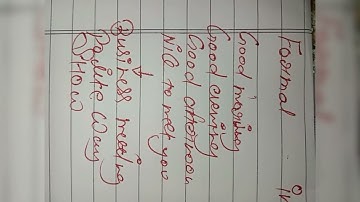 Formal in
Good morning
Good evening
Good afternoon
Nice to meet you
Business meeting
Polite Way